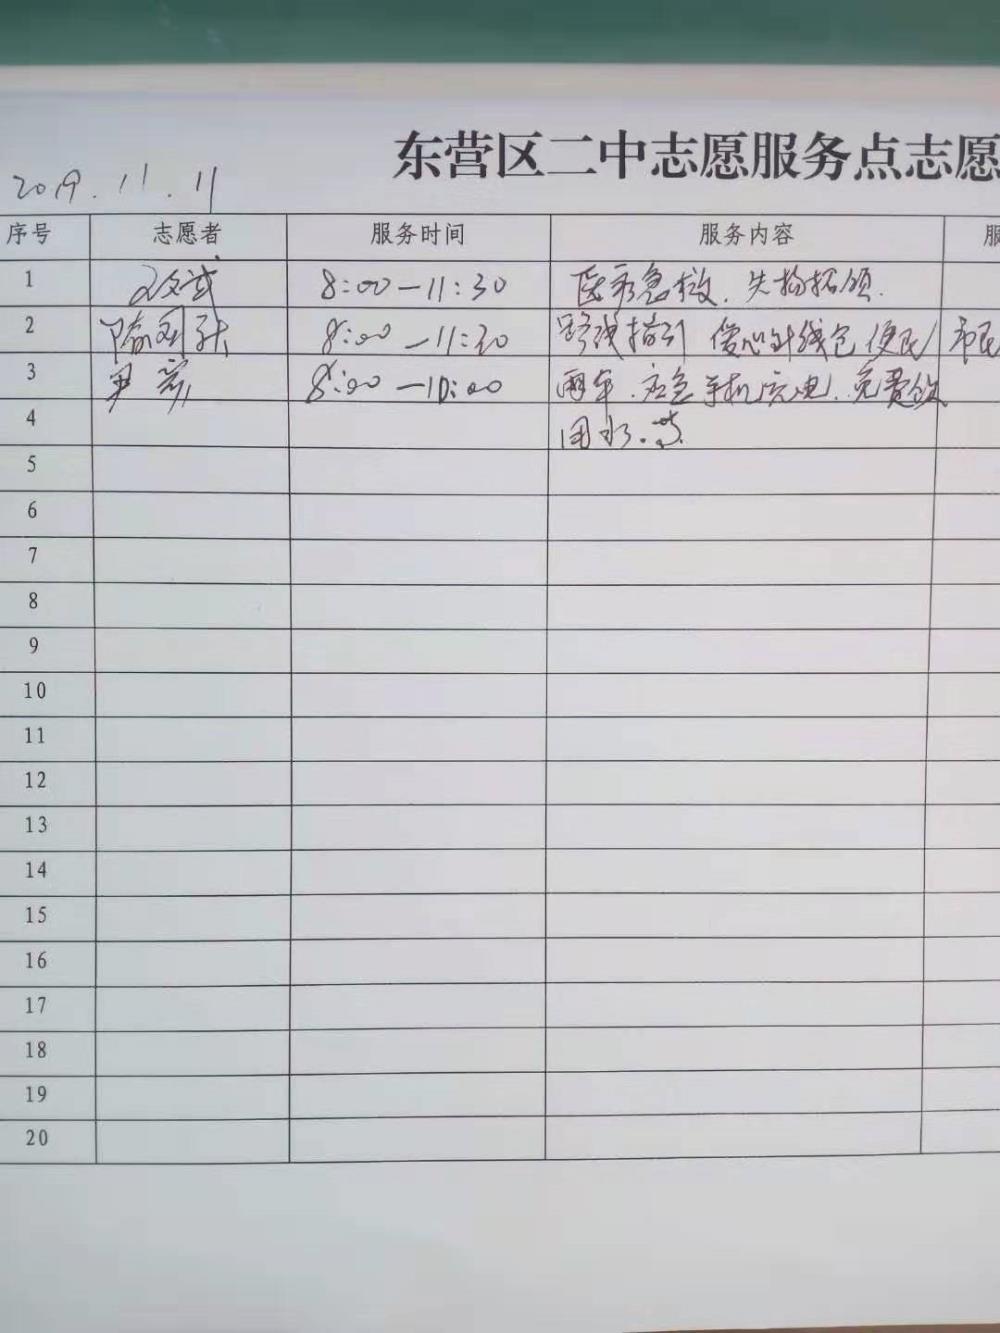 东营区二中志愿服务点志愿
2019.11.11
序号 志愿者 服务时间 服务内容 服
1 8:00—11:30 医疗急救.失物招领.
2 8:00—11:30 路线指引 爱心针线包 便民 市民
3 尹 8:00—10:00 雨伞.应急手机充电.免费饮
4 用水.等.
5
6
7
8
9
10
11
12
13
14
15
16
17
18
19
20